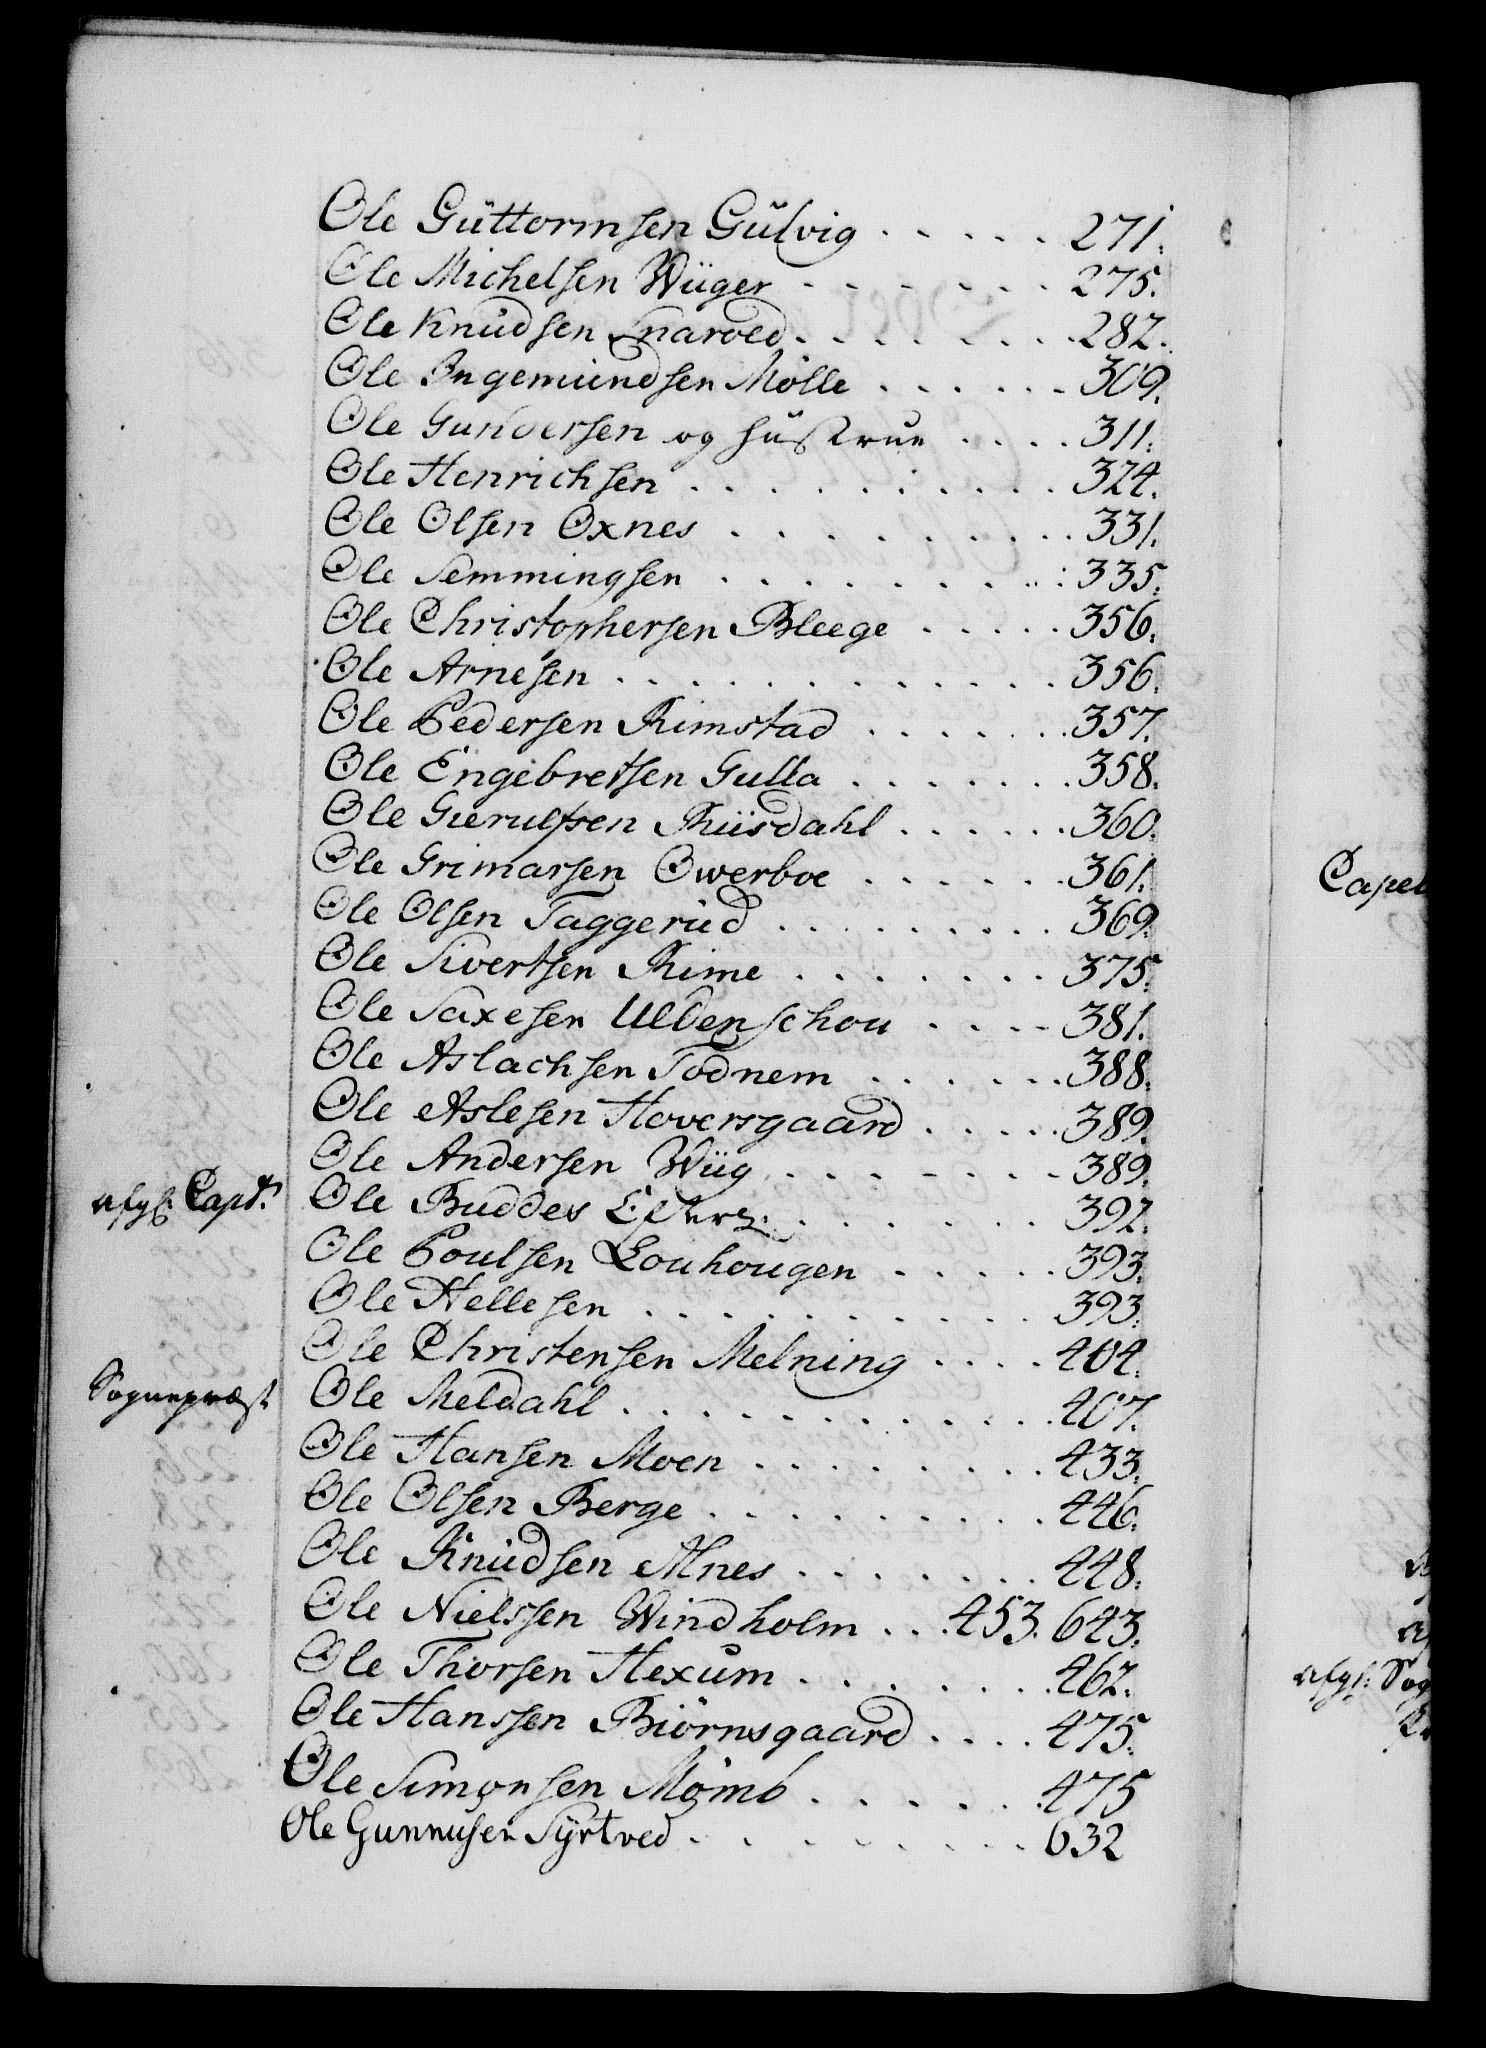 Ole Güttormsen Gülvig . . . . . 271.
Ole Michelsen Wüger . . . . . . 275.
Ole Knüdsen Snaroed . . . . . . 282.
Ole Ingemündsen Mölle . . . . . 309.
Ole Gundersen og Hüstrue . . . . 311.
Ole Henrichsen . . . . . . . . . 324.
Ole Olsen Oxnes . . . . . . . . . 331.
Ole Semmingsen . . . . . . . . . 335.
Ole Christophersen Bleege . . . . . 356.
Ole Arnesen . . . . . . . . . . . 356.
Ole Pedersen Rimstad . . . . . . 357.
Ole Engebretsen Gulla . . . . . . 358.
Ole Gierulfsen Riisdahl . . . . . . 360.
Ole Grimarsen Owerboe . . . . . . 361.
Ole Olsen Taggerüd . . . . . . . . 369.
Ole Sivertsen Rime . . . . . . . 375.
Ole Saxesen Uldenschou . . . . 381.
Ole Aslachsen Todnem . . . . . . 388.
Ole Aslesen Hoversgaard . . . . . 389.
Ole Andersen Wüg . . . . . . . 389.
afgl: Capt. Ole Buddes Efterl: . . . . . . 392.
Ole Poulsen Louhougen . . . . . 393.
Ole Hellesen . . . . . . . . . . 393.
Ole Christensen Melning . . . . 404.
Sognepræst Ole Meldahl . . . . . . . . . . . 407.
Ole Hansen Moen . . . . . . . . 433.
Ole Olsen Berge . . . . . . . . . 446.
Ole Knüdsen Alnes . . . . . . . 448.
Ole Nielssen Windholm . . . 453. 643.
Ole Thorsen Hexum . . . . . . . 462.
Ole Hanssen Biörnsgaard . . . . 475.
Ole Simonsen Momb . . . . . . 475
Ole Gunnusen Syrtved . . . . . . . . 632